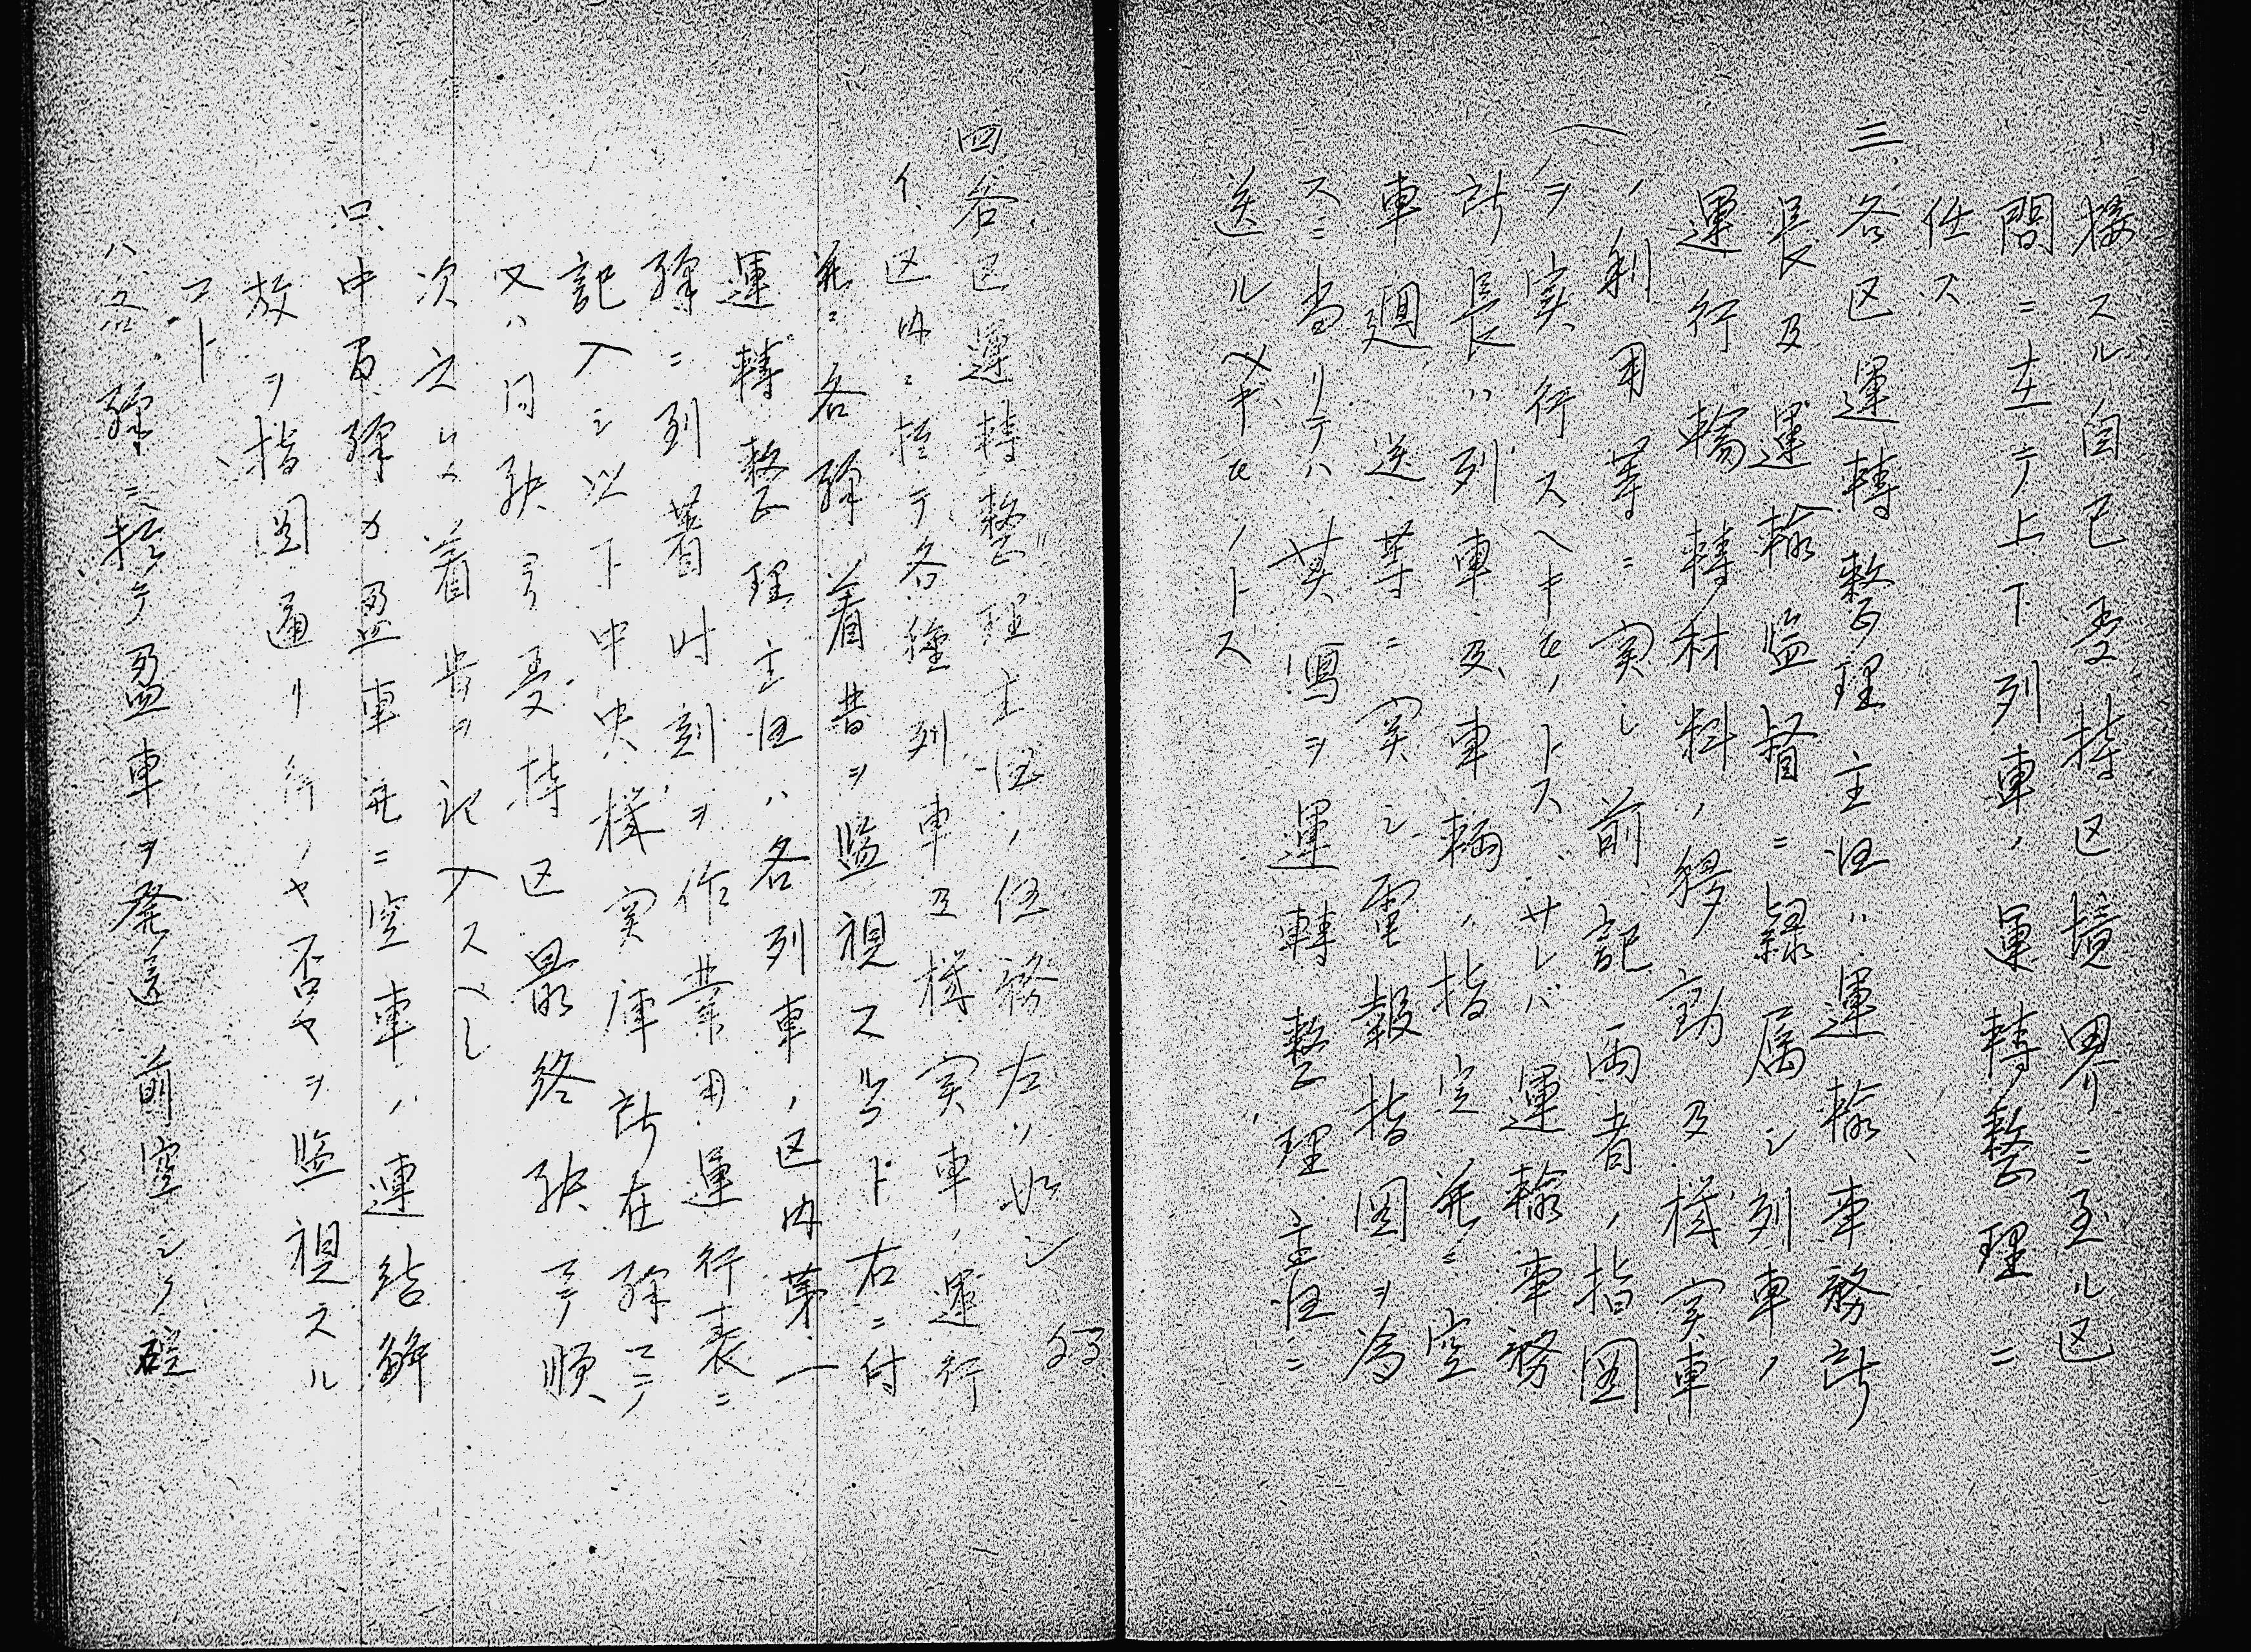 接スル自己受持区境界ニ至ル区
間ニ在テ上下列車ノ運轉整理ニ
任ス
三、各区運轉整理主任ハ運輸車務所
長及運輸監督ニ隷属シ列車ノ
運行輸轉材料ノ移動及機実車
ノ利用等ニ実シ前記両者ノ指図
ヲ実行スヘキモノトスサレバ運輸車務
所長ハ列車及車輌ノ指定並ニ空
車廻送等ニ実シ電報指図ヲ為
スニ当リテハ其寫ヲ運轉整理主任ニ
送ルベキモノトス
四各区運轉整理主任ノ任務左ノ如シ
イ、区内ニ於テ各種列車及機実車ノ運行
並ニ各驛着昔ヲ監視スルコト右ニ付
運轉整理主任ハ各列車ノ区内第一
驛ニ到着时刻ヲ作業用運行表ニ
記入シ以下中央機実庫所在驛
又ハ同駅ヨリ受持区最終駅マテ順
次之レカ着昔ヲ記入スヘシ
ロ、中百驛カ盈車並ニ空車ノ連結解
放ヲ指図通リ行ノヤ否ヤヲ監視スル
コト
ハ各驛ニ於テ盈車ヲ発送前空シク碇